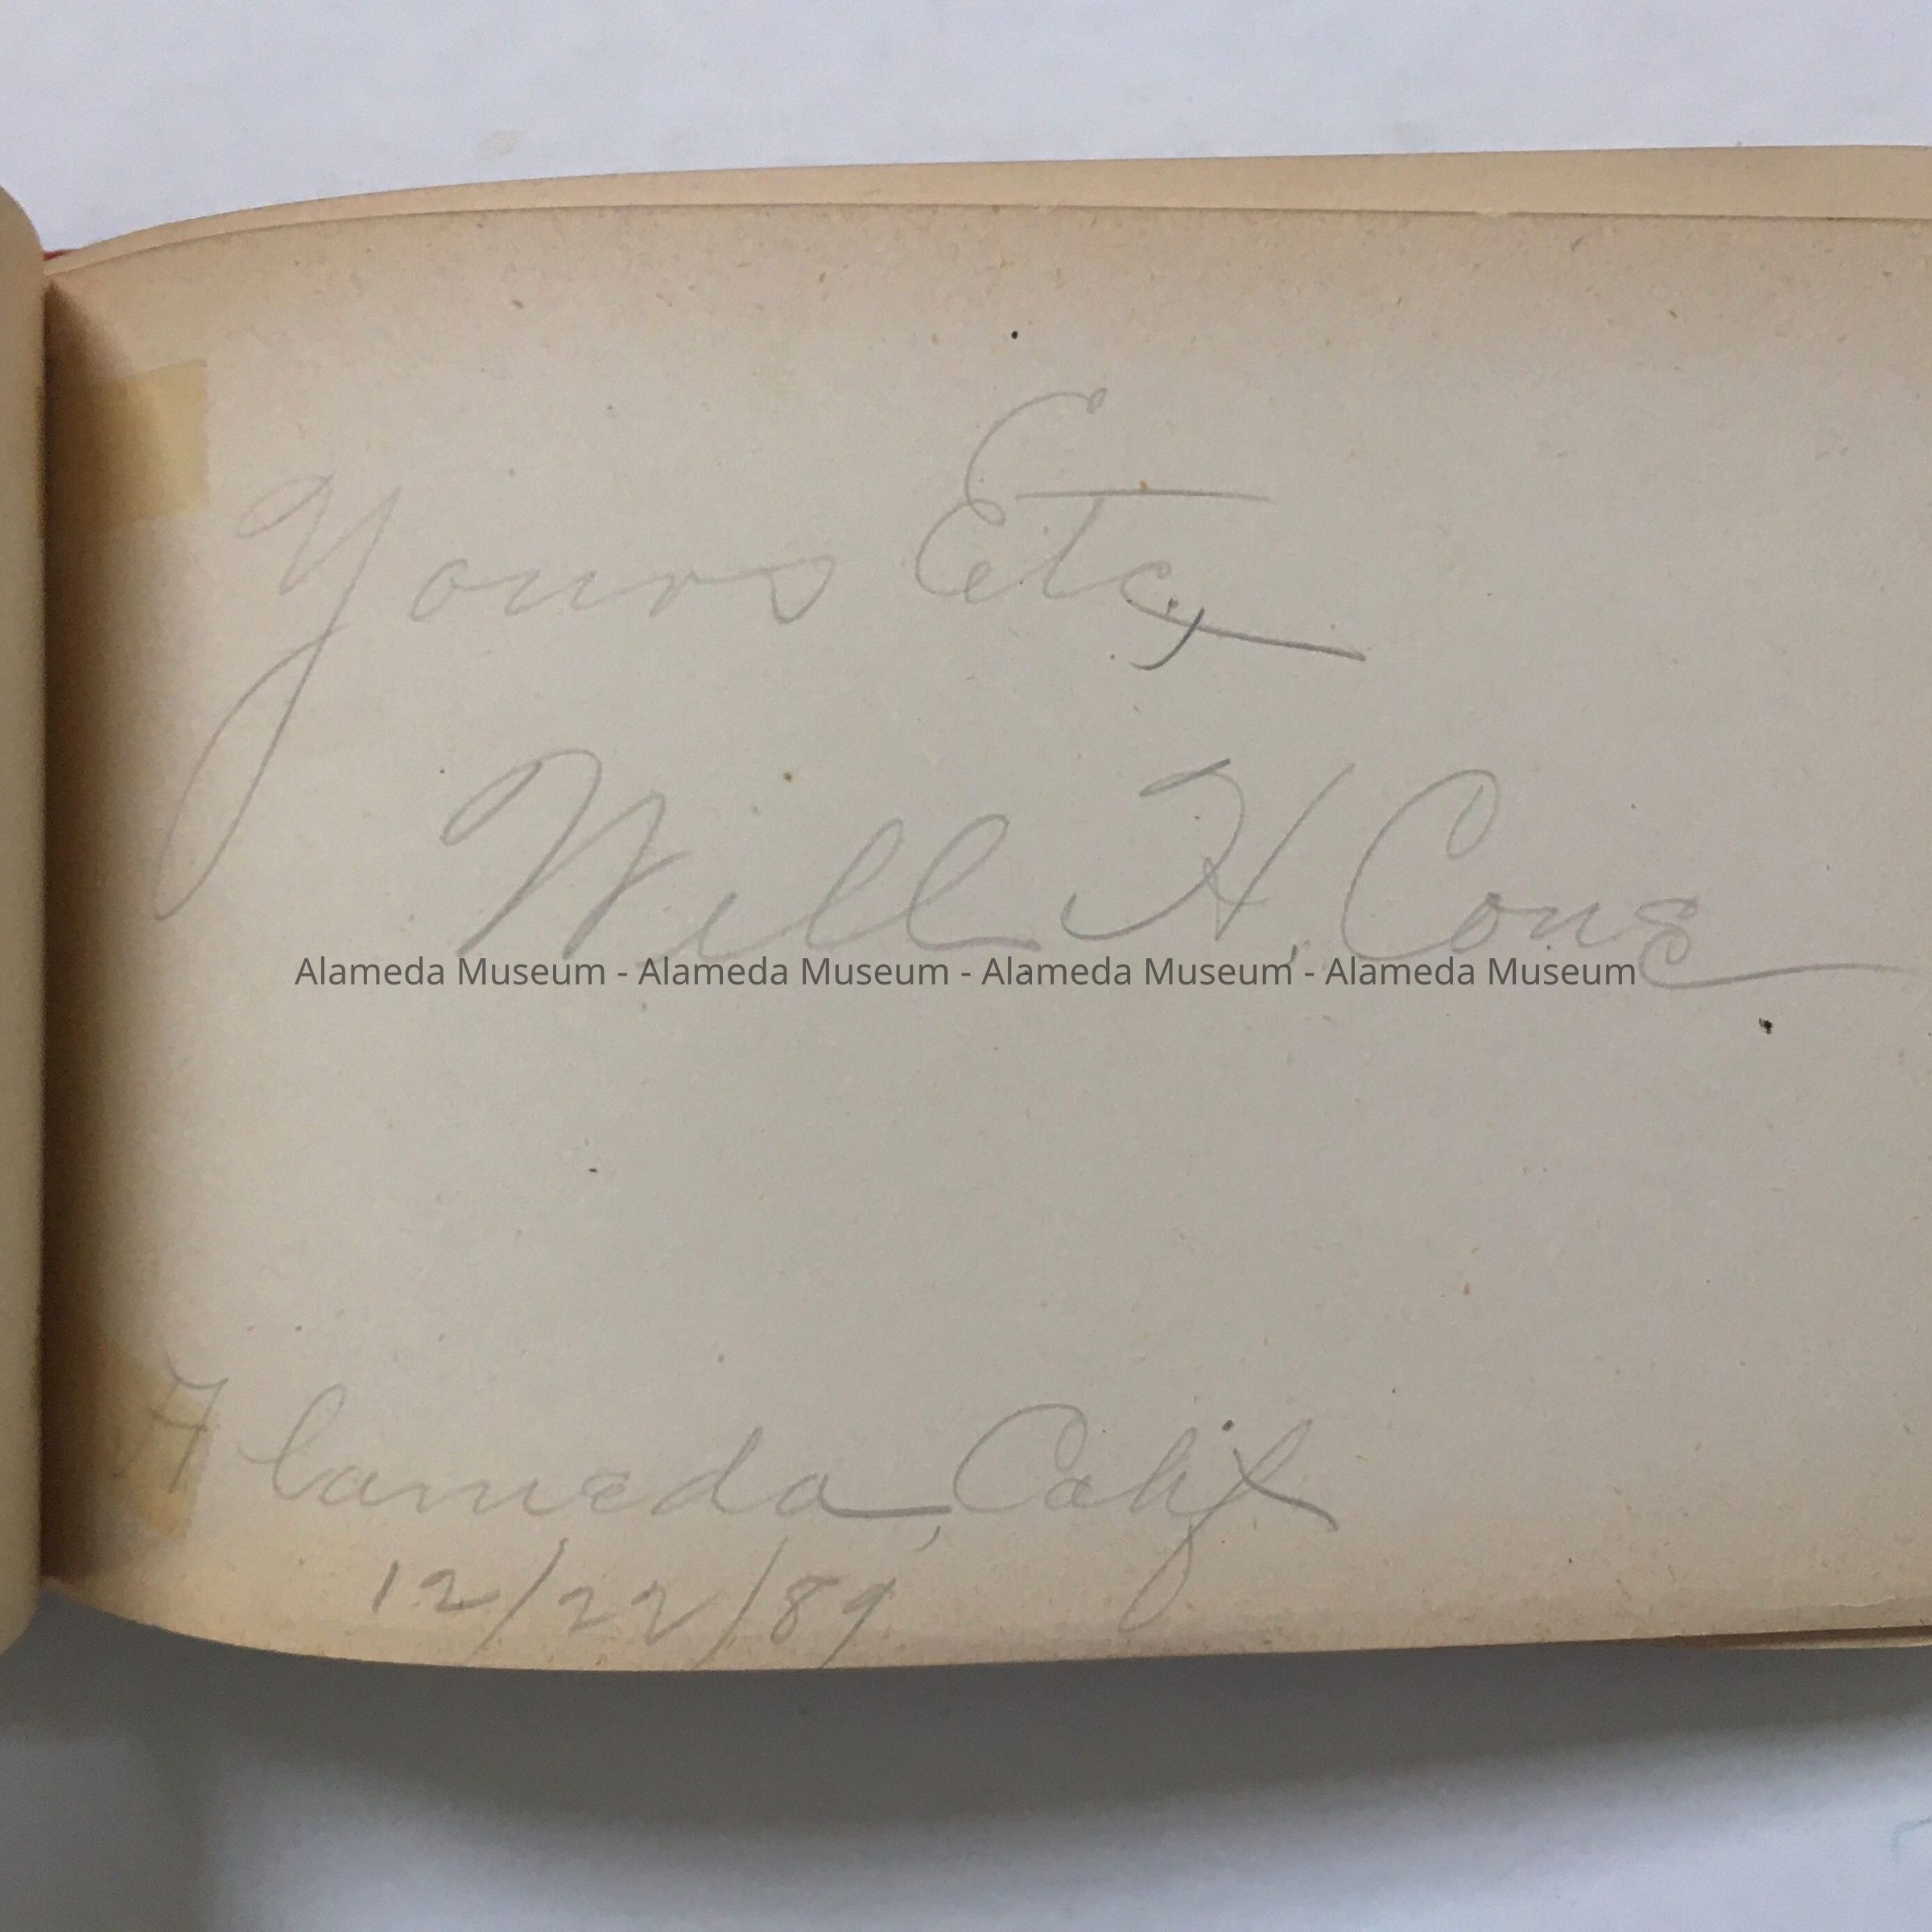 Yours Etc,
Will H. Cone
Alameda Museum - Alameda Museum - Alameda Museum - Alameda Museum
Alameda, Calif
12/22/89